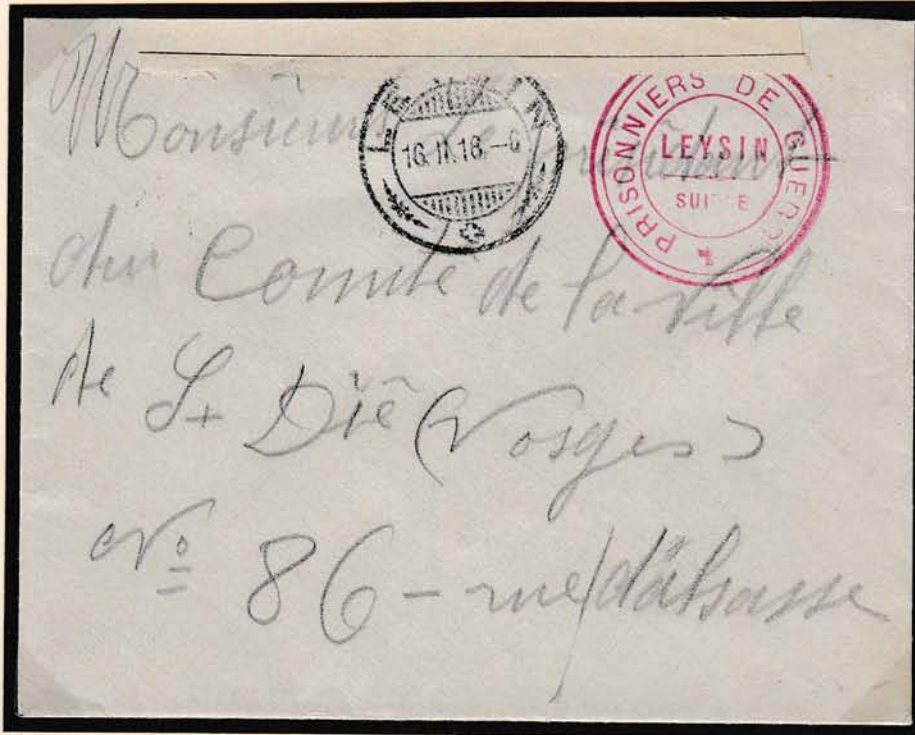 Mr
Monsieur Le Président
du Comité de la Ville
de St Dié (Vosges)
No 86 - rue d'alsasse
LEYSIN
16.II.16.-6
PRISONNIERS DE GUERRE
LEYSIN
SUISSE